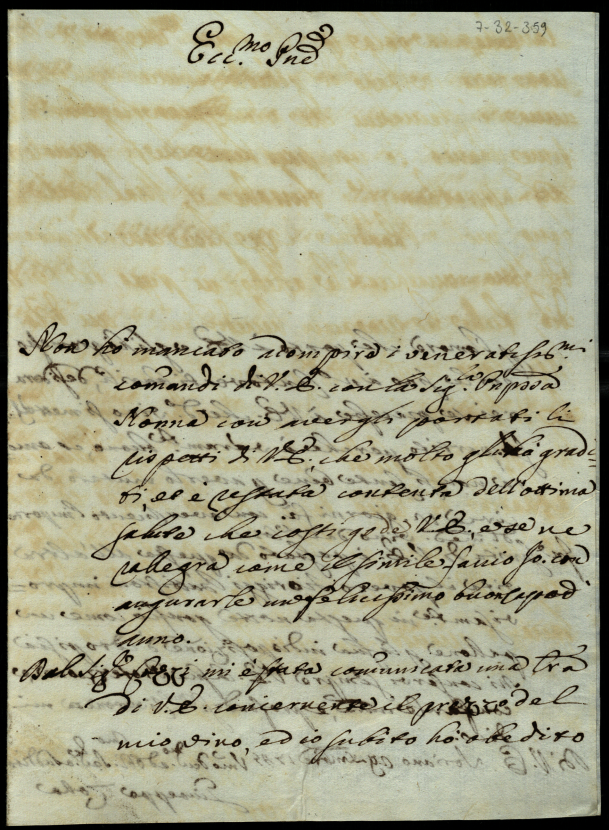 7-32-359
Ecc.mo Pnẽ
Non ho mancato adempire i veneratissi.mi
comandi di V.E. con la Sig.la Prñpssa
Nonna con avergli portati li
rispetti di V.E., che molto gradi-
ti, et è restata contenta dell'ottima
salute che costì gode V.E., e se ne
ralegra come il simile facio Io. con
augurarle un felicissimo buon capo d
anno.
Dal Sig.re mi è stata comũnicata una lra
di V.E. concernente il prezzo del
mio vino, ed io subito ho obedito